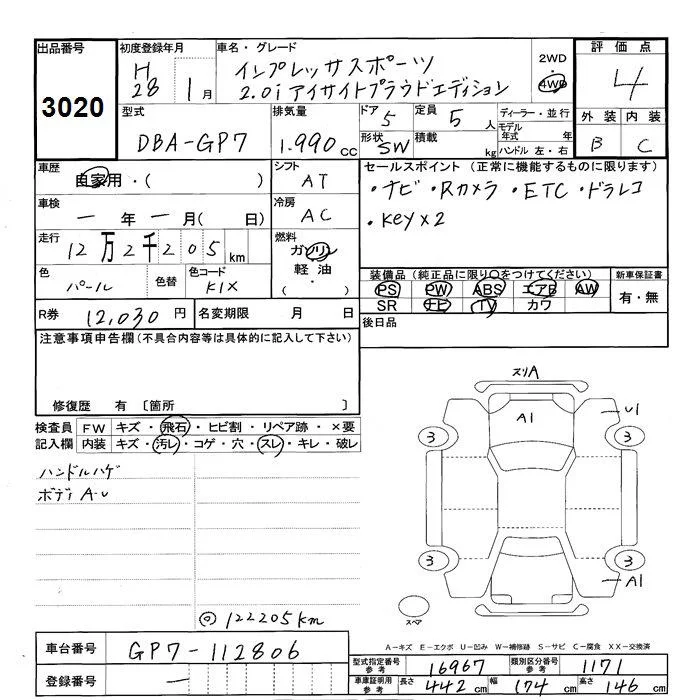 出品番号
3020
初度登録年月
H28 1月
車名・グレード
インプレッサスポーツ
2.0i アイサイトプラウドエディション
2WD
4WD
評価点
4
外装 内装
B C
型式
DBA-GP7
排気量
1.990 cc
ドア
5
形状
SW
定員
5人
積載
kg
ディーラー・並行
モデル年式 年
ハンドル 左・右
車歴
自家用・( )
シフト
AT
車検
一年一月(日)
冷房
AC
走行
12万2千205km
燃料
ガソリン
軽油
・( )
色
パール
色替
色コード
K1X
R券
12,030円
名変期限 月 日
セールスポイント (正常に機能するものに限ります)
・ナビ・Rカメラ・ETC・ドラレコ
・Key×2
装備品 (純正品に限り○をつけてください)
PS PW ABS エアB AW
SR ナビ TV カワ
新車保証書
有・無
後日品
注意事項申告欄(不具合内容等は具体的に記入して下さい)
修復歴 有 〔箇所 〕
検査員記入欄
FW キズ・飛石・ヒビ割・リペア跡・×要
内装 キズ・汚レ・コゲ・穴・スレ・キレ・破レ
ハンドルハゲ
ボディ A・U
◎ 122205km
スリA
A1
U1
3
3
3
3
A1
スペア
A-キズ E-エクボ U-凹み W-補修跡 S-サビ C-腐食 XX-交換済
車台番号
GP7-112806
登録番号
一
型式指定番号 参考
16967
類別区分番号 参考
1171
車庫証明用 参考
長さ 442cm 幅 174cm 高さ 146cm